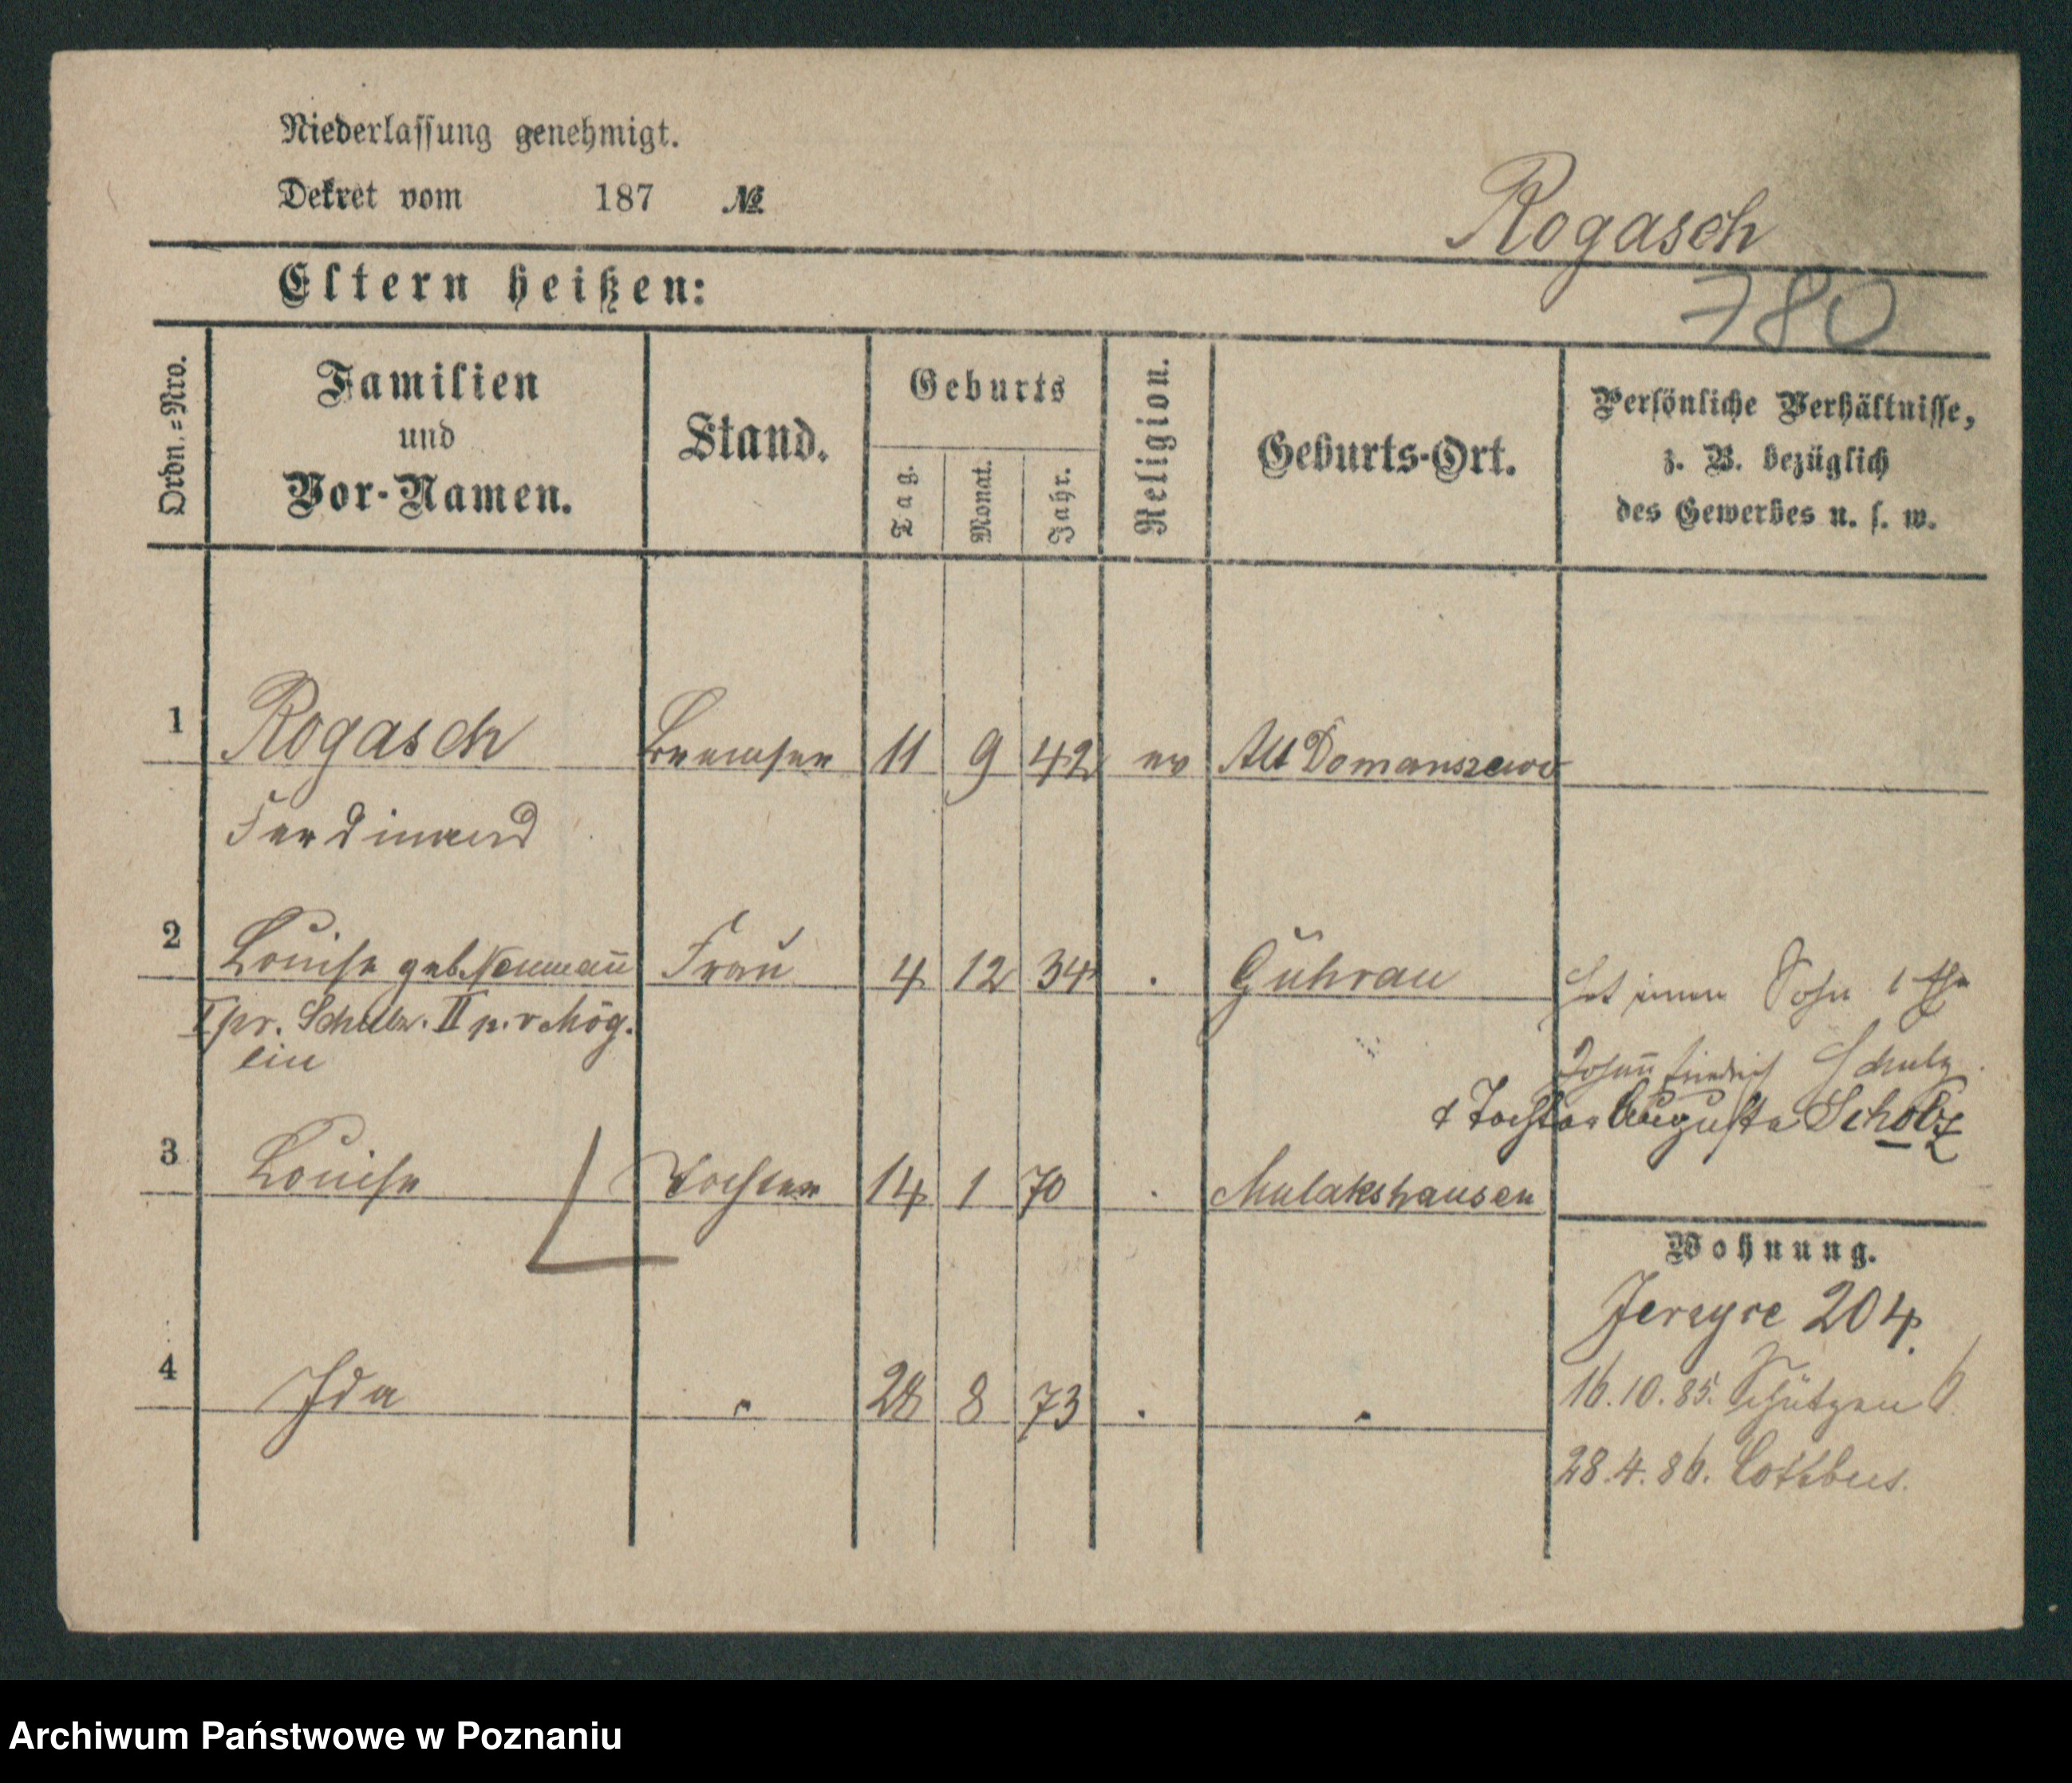 Niederlassung genehmigt.
Dekret vom 187 №
Rogasch
Eltern heißen:
780
Ordn.-Nro.
Familien
und
Vor-Namen.
Stand.
Geburts
Tag.
Monat.
Jahr.
Religion.
Geburts-Ort.
Persönliche Verhältnisse,
z. B. bezüglich
des Gewerbes u. s. w.
1 Rogasch Bremser 11 9 42 ev Alt Domanszewo
Ferdinand
2 Louise geb. Neumann Frau 4 12 34 . Guhrau hat einen Sohn 1 Ehe
I pr. Schulz. II p. v Mög.
lin
Johann Friedrich Schulz
& Tochter Auguste Scholz
3 Louise Tochter 14 1 70 . Mulakshausen
Wohnung.
Jersyce 204.
4 Ida " 28 8 73 . "
16.10.85. Schützen 6.
28.4.86. Cottbus.
Archiwum Państwowe w Poznaniu